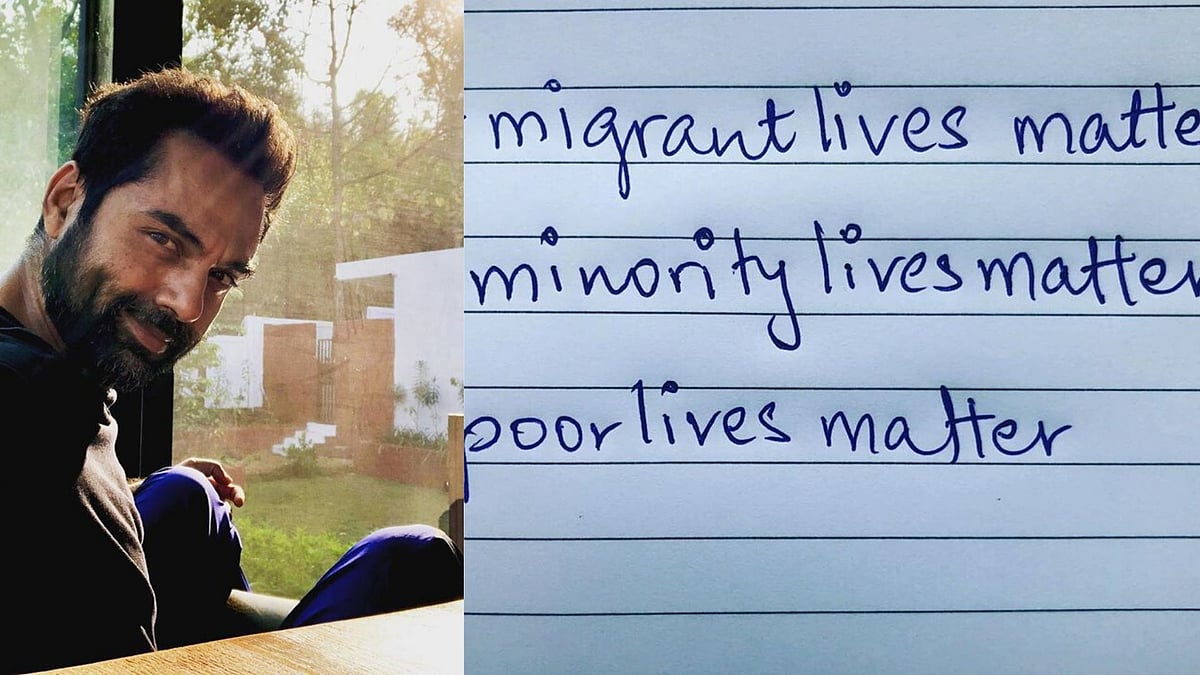 migrant lives matte
minority lives matter
poor lives matter